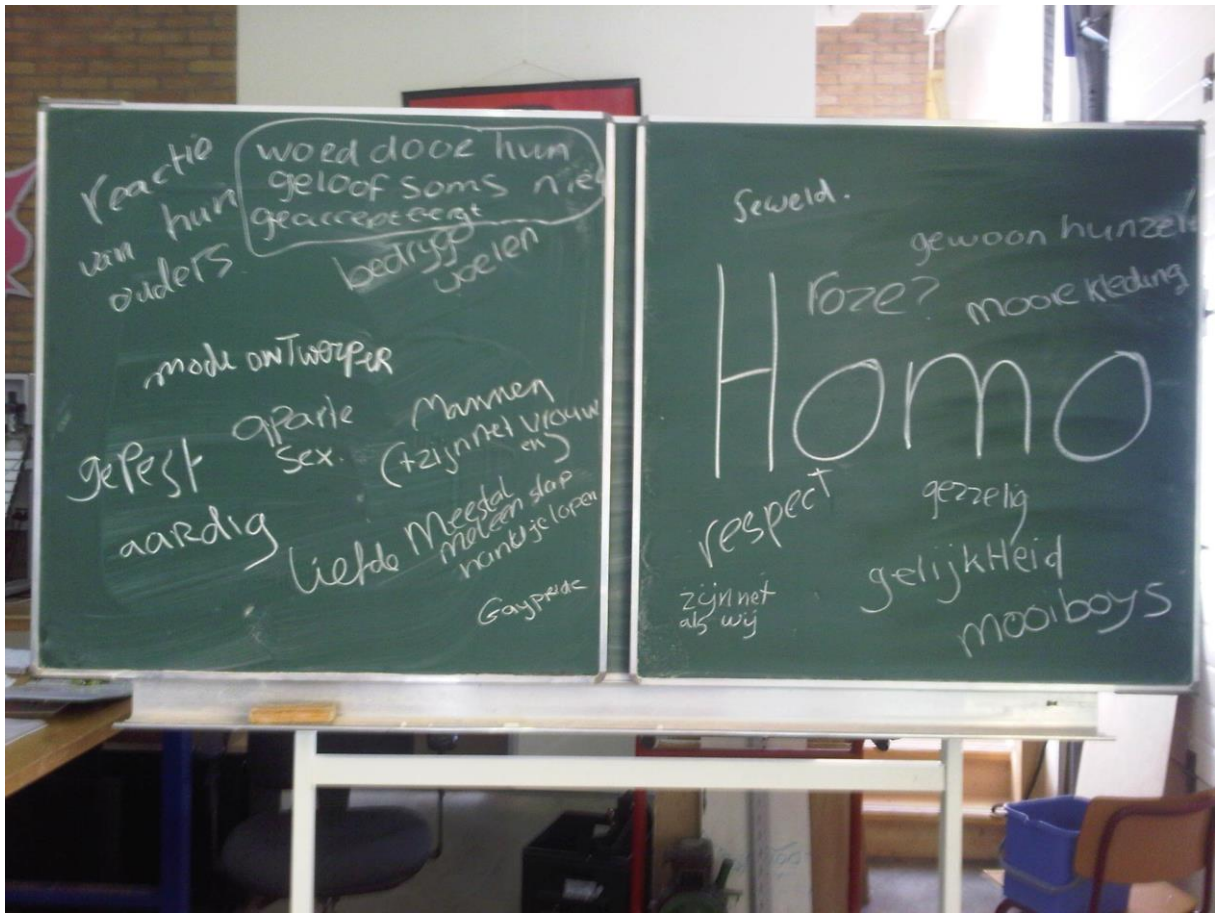 reactie
van hun
ouders
woed dooe hun
geloof soms niet
geaccepteergt
joelen
mode ontwerper
aparte
sex.
Mannen
(+zijn net vrouw
en)
gepest
aardig
liefde
Meestal
met een slap
handje lopen
Gayprede
Geweld.
gewoon hunzelf
roze?
mooie kleding
Homo
respect
gezzelig
gelijkHeid
zijn net
als wij
mooiboys